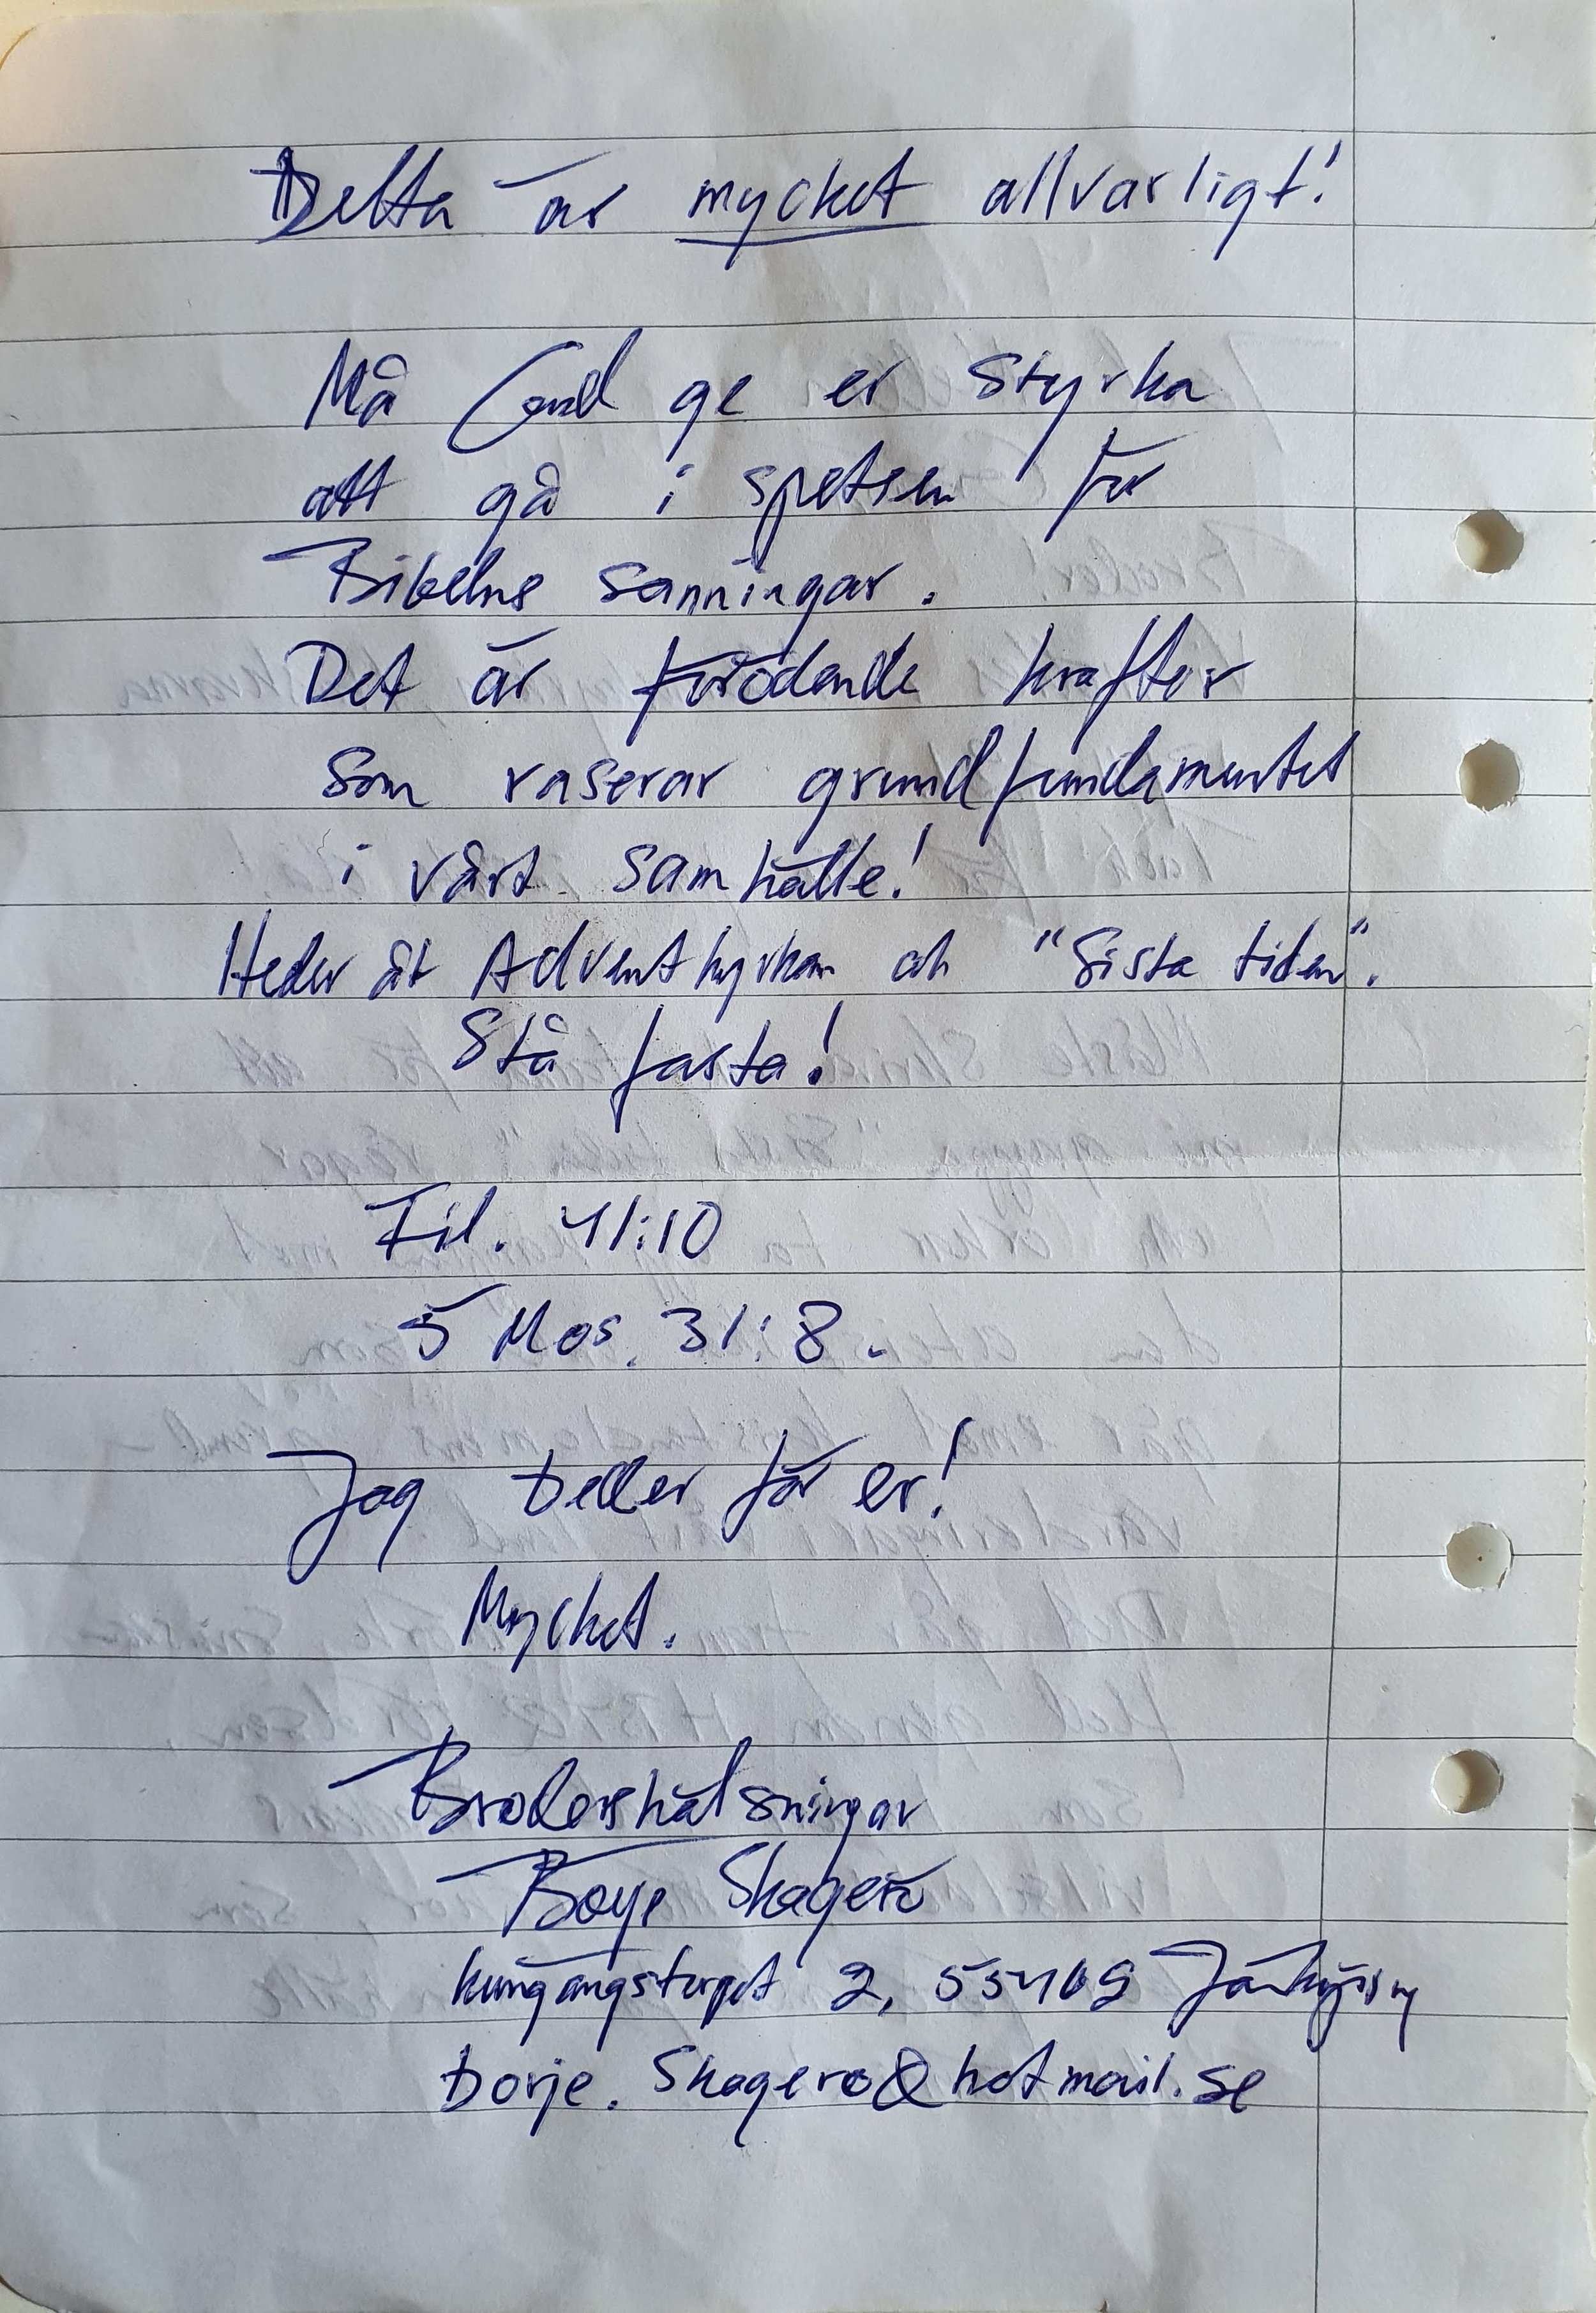 Detta är mycket allvarligt!
Må Gud ge er styrka
att gå i spetsen för
Bibelns sanningar.
Det är förödande krafter
som raserar grundfundamentet
i vårt samhälle!
Heder åt Adventkyrkan och "Sista tiden".
Stå fasta!
Fil. 41:10
5 Mos. 31:8.
Jag beder för er!
Mycket.
Brodershälsningar
Skagerö
2,
Skagero@hotmail.se